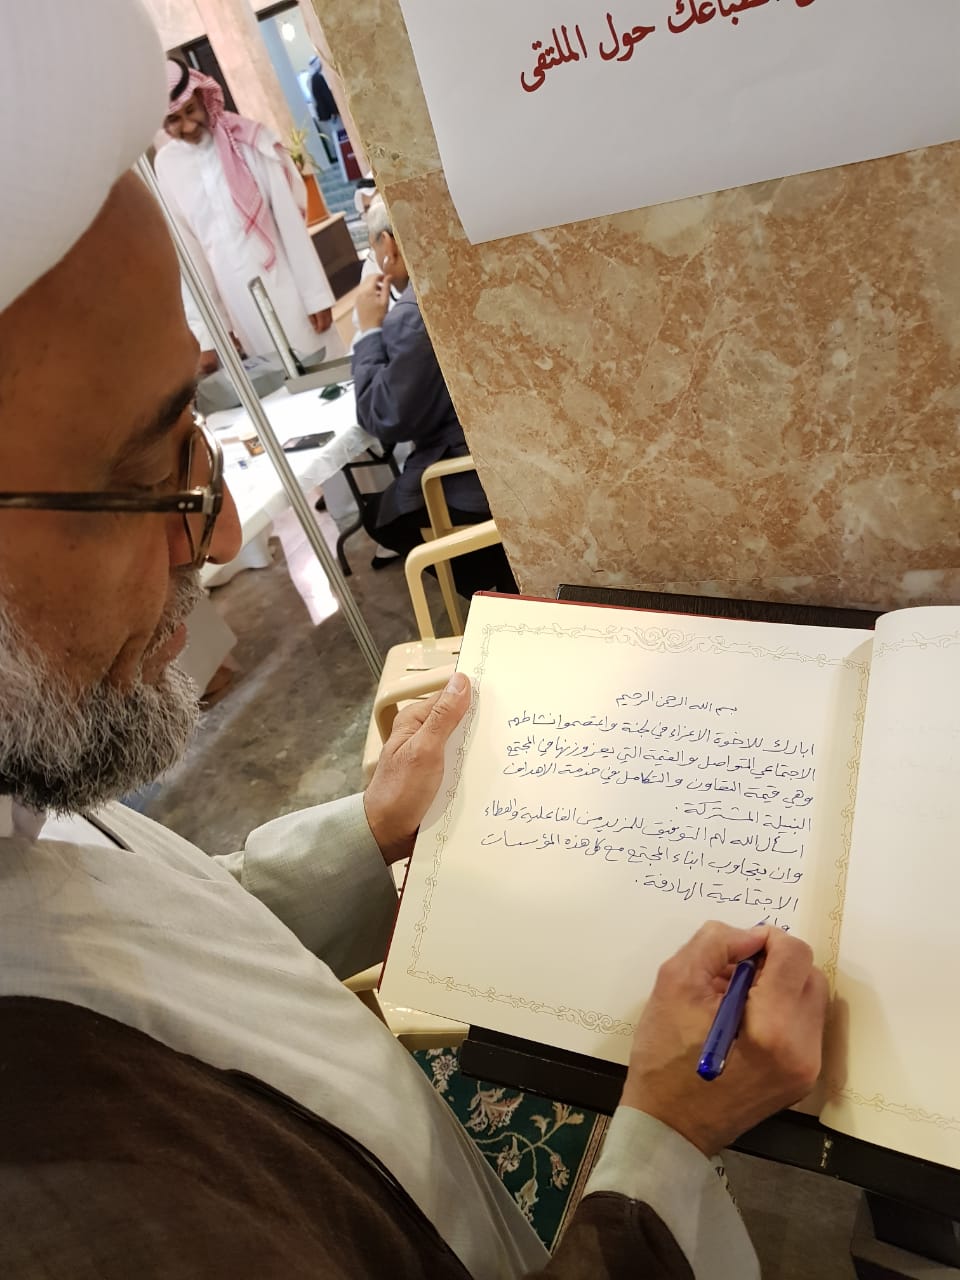 انطباعك حول الملتقى
بسم الله الرحمن الرحيم
ابارك للاخوة الاعزاء في لجنة واعتصموا نشاطهم
الاجتماعي المتواصل والقيمة التي يعززونها في المجتمع
وهي قيمة التعاون والتكامل في خدمة الاهداف
النبيلة المشتركة .
اسأل الله لهم التوفيق للمزيد من الفاعلية والعطاء
وان يتجاوب ابناء المجتمع مع كل هذه المؤسسات
الاجتماعية الهادفة .